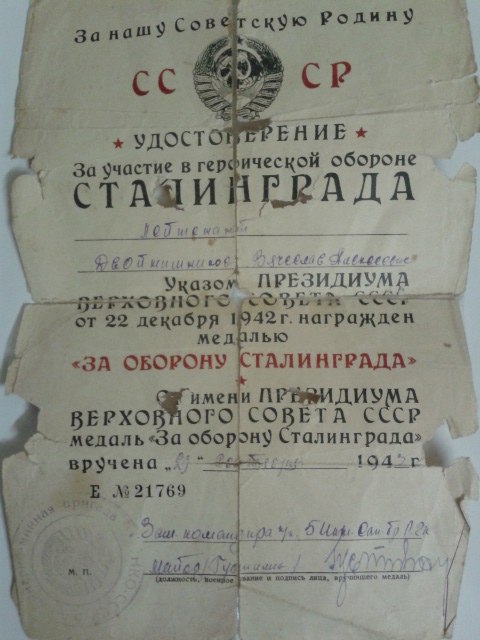 За нашу Советскую Родину
СССР
УДОСТОВЕРЕНИЕ
За участие в героической обороне
СТАЛИНГРАДА
лейтенант
Вячеслав
Указом ПРЕЗИДИУМА
ВЕРХОВНОГО СОВЕТА СССР
от 22 декабря 1942 г. награжден
медалью
«ЗА ОБОРОНУ СТАЛИНГРАДА»
От имени ПРЕЗИДИУМА
ВЕРХОВНОГО СОВЕТА СССР
медаль «За оборону Сталинграда»
вручена „23“ 1943 г
Е №21769
Зам. командира
М. П. майор
(должность, военное звание и подпись лица, вручившего медаль)